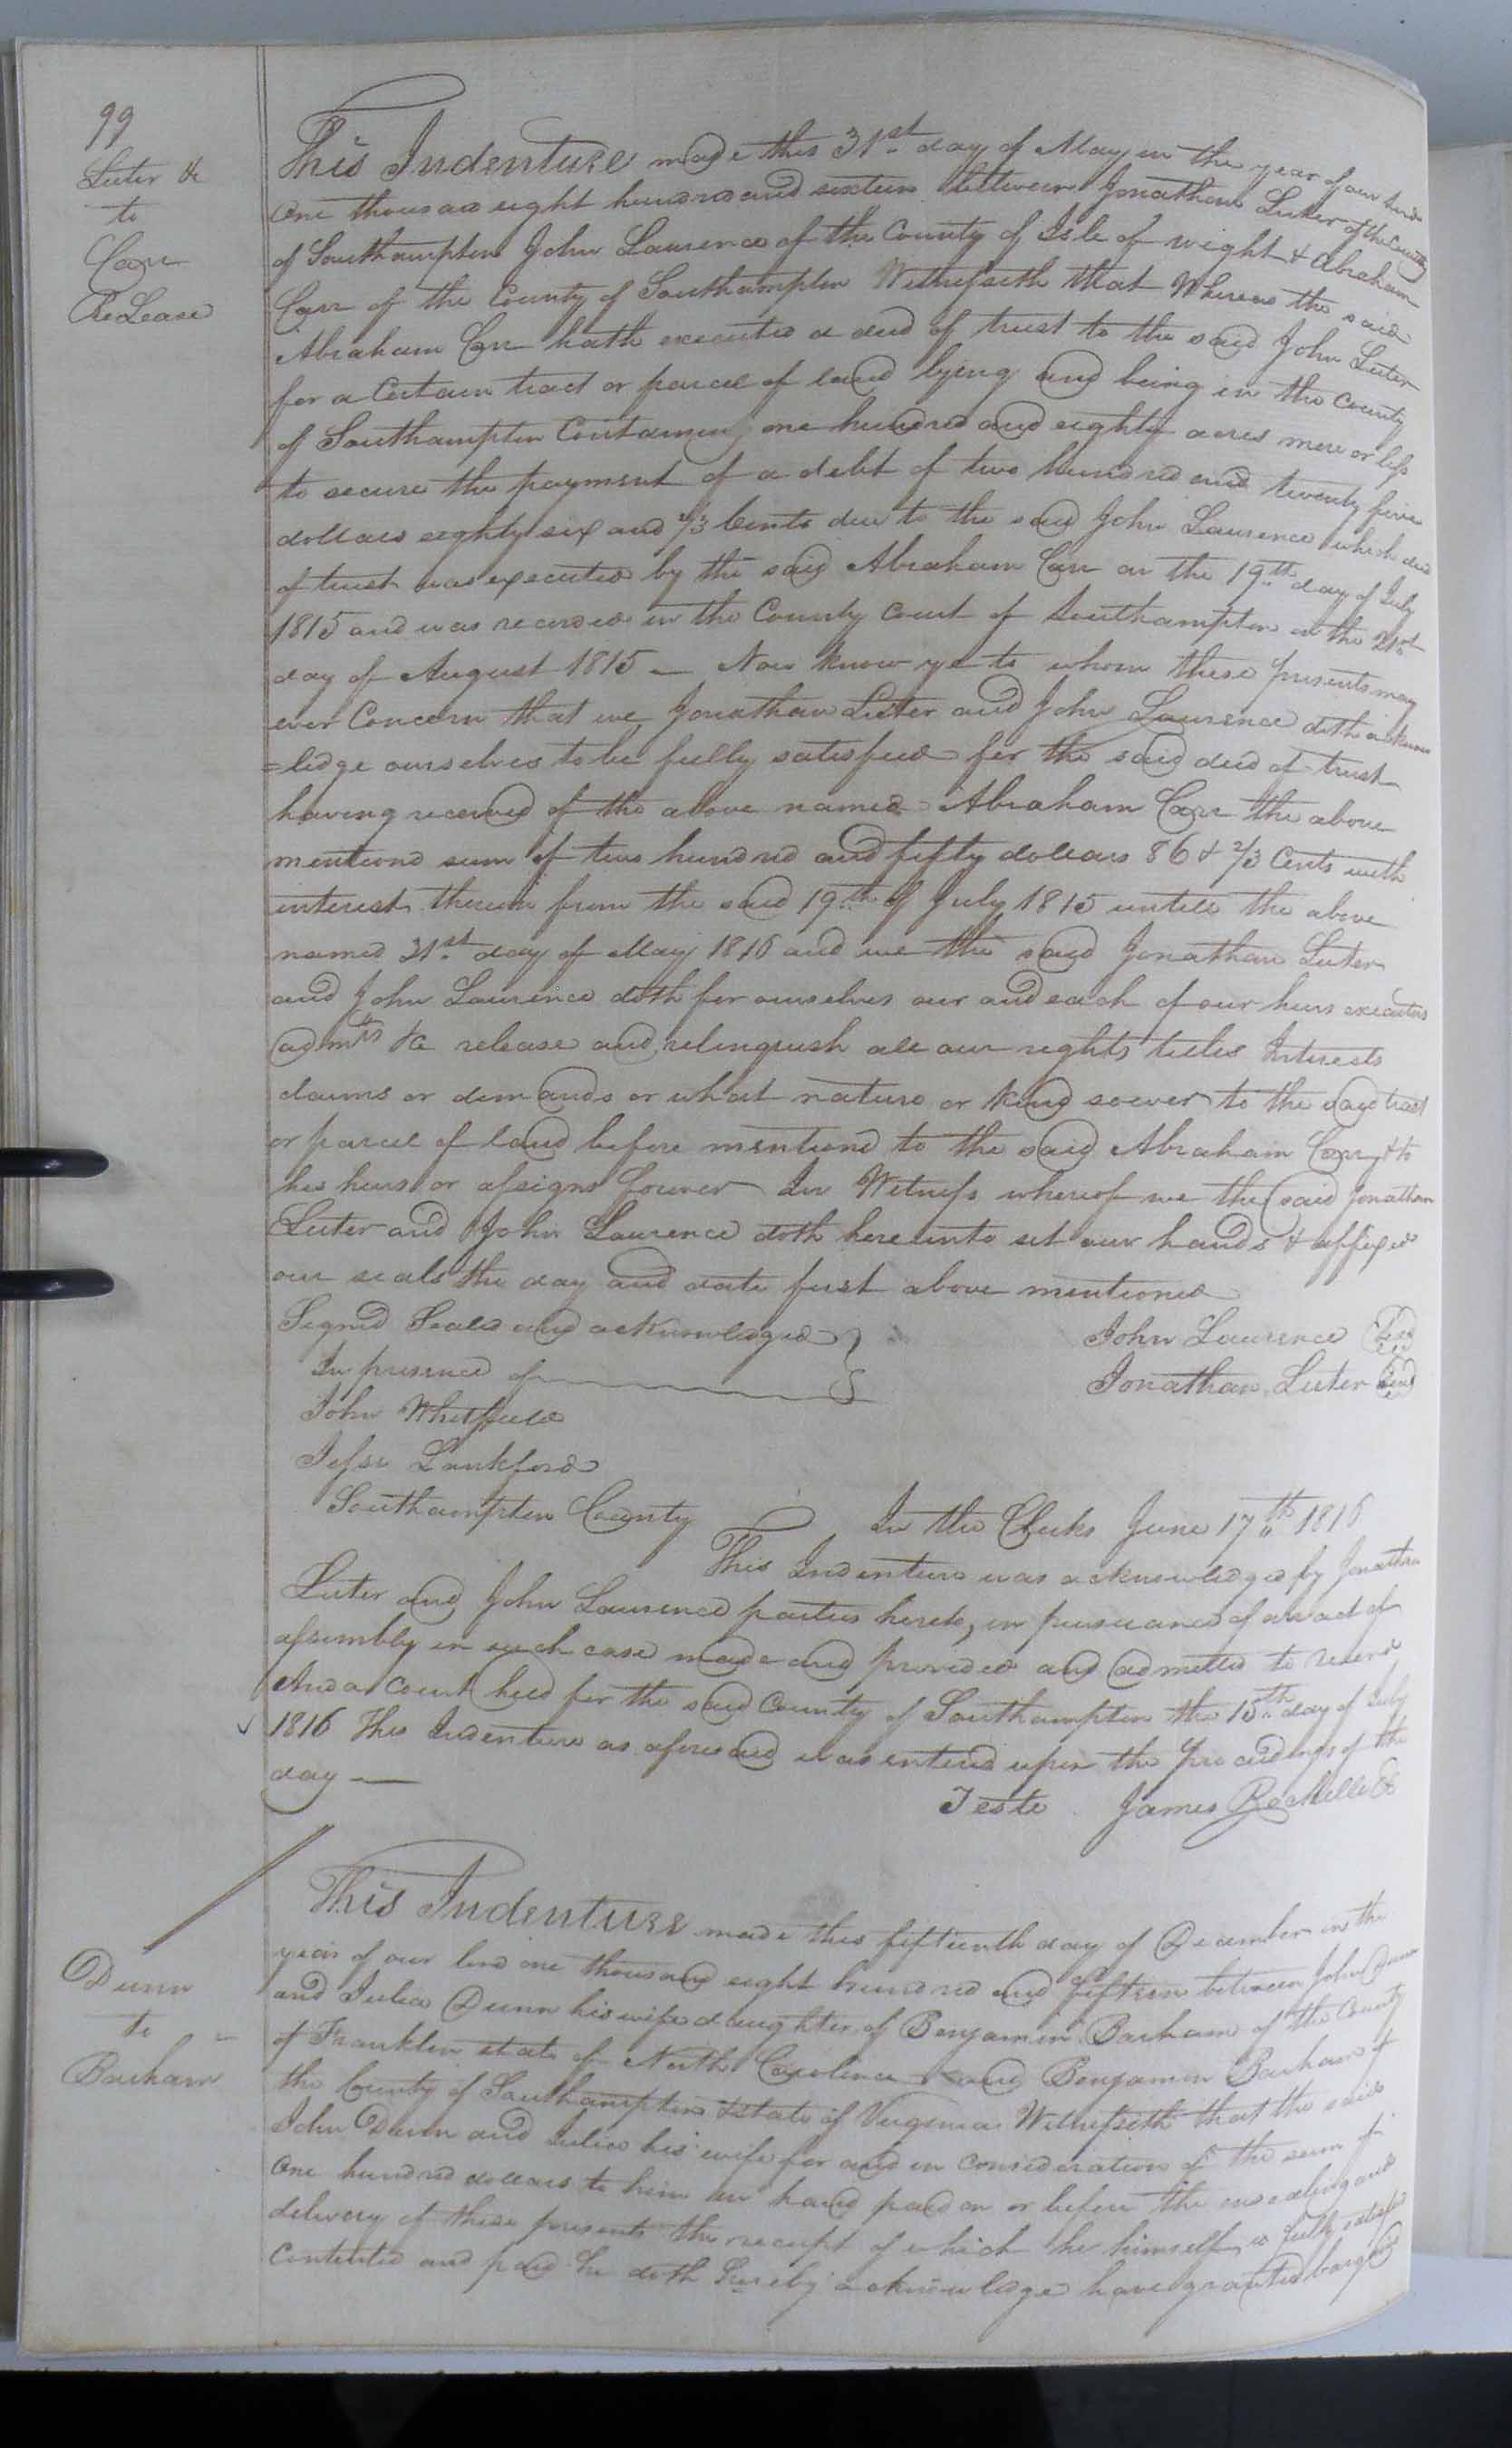 99
Luter &c
to
Carr
ReLease
This Indenture made this 31st day of May in the year of our Lord
One thousand eight hundred and sixteen between Jonathan Luter of the County
of Southampton John Laurence of the County of Isle of wight & Abraham
Carr of the County of Southampton Witnesseth that Whereas the said
Abraham Carr hath executed a deed of trust to the said John Luter
for a Certain tract or parcel of land lying and being in the County
of Southampton Containing one hundred and eighty acres more or less
to secure the payment of a debt of two hundred and twenty five
dollars eighty six and 2/3 Cents due to the said John Laurence which deed
of trust was executed by the said Abraham Carr on the 19th day of July
1815 and was recorded in the County Court of Southampton on the 21st
day of August 1815 — Now know ye to whom these presents may
ever Concern that we Jonathan Luter and John Laurence doth acknow
=ledge ourselves to be fully satisfied for the said deed of trust
having received of the above named Abraham Carr the above
mentiond sum of two hundred and fifty dollars 86 & 2/3 Cents with
interest thereon from the said 19th of July 1815 untill the above
named 31st day of May 1816 and we the said Jonathan Luter
and John Laurence doth for ourselves our and each of our heirs executors
admrs &c release and relinquish all our rights titles Interests
claims or demands or what nature or kind soever to the said tract
or parcel of land before mentiond to the said Abraham Carr & to
his heirs or assigns forever In Witness whereof we the said Jonathan
Luter and John Laurence doth hereunto set our hands & affixed
our seals the day and date first above mentioned
Signed Seald and acknowledged } John Laurence Seal
In presence of } Jonathan Luter Seal
John Whitfield
Jesse Lankford
Southampton County In the Clerks June 17th 1816
This Indenture was acknowledged by Jonathan
Luter and John Laurence parties hereto, in pursuance of an act of
assembly in such case made and provided and admitted to record
And at a Court held for the said County of Southampton the 15th day of July
1816 This Indenture as aforesaid was entered upon the proceedings of the
day —
Teste James Rochelle Cl
Dunn
to
Barham
This Indenture made this fifteenth day of December in the
year of our lord one thousand eight hundred and fifteen between John Dunn
and Julia Dunn his wife daughter of Benjamin Barham of the County
of Franklin state of North Carolina and Benjamin Barham of
the County of Southampton & state of Virginia Witnesseth that the said
John Dunn and Julia his wife for and in Consideration of the sum of
One hundred dollars to him in hand paid on or before the ensealing and
delivery of these presents the receipt of which he himself is fully satisfied
Contented and paid he doth hereby acknowledge have granted bargaind